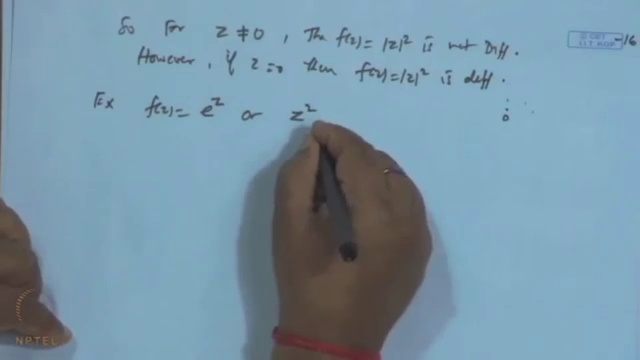 So For z ≠ 0, The f(z) = |z|² is not Diff.
However, if z = 0 then f(z) = |z|² is diff.
Ex f(z) = e^z or z²
I.I.T. KGP
-16
NPTEL